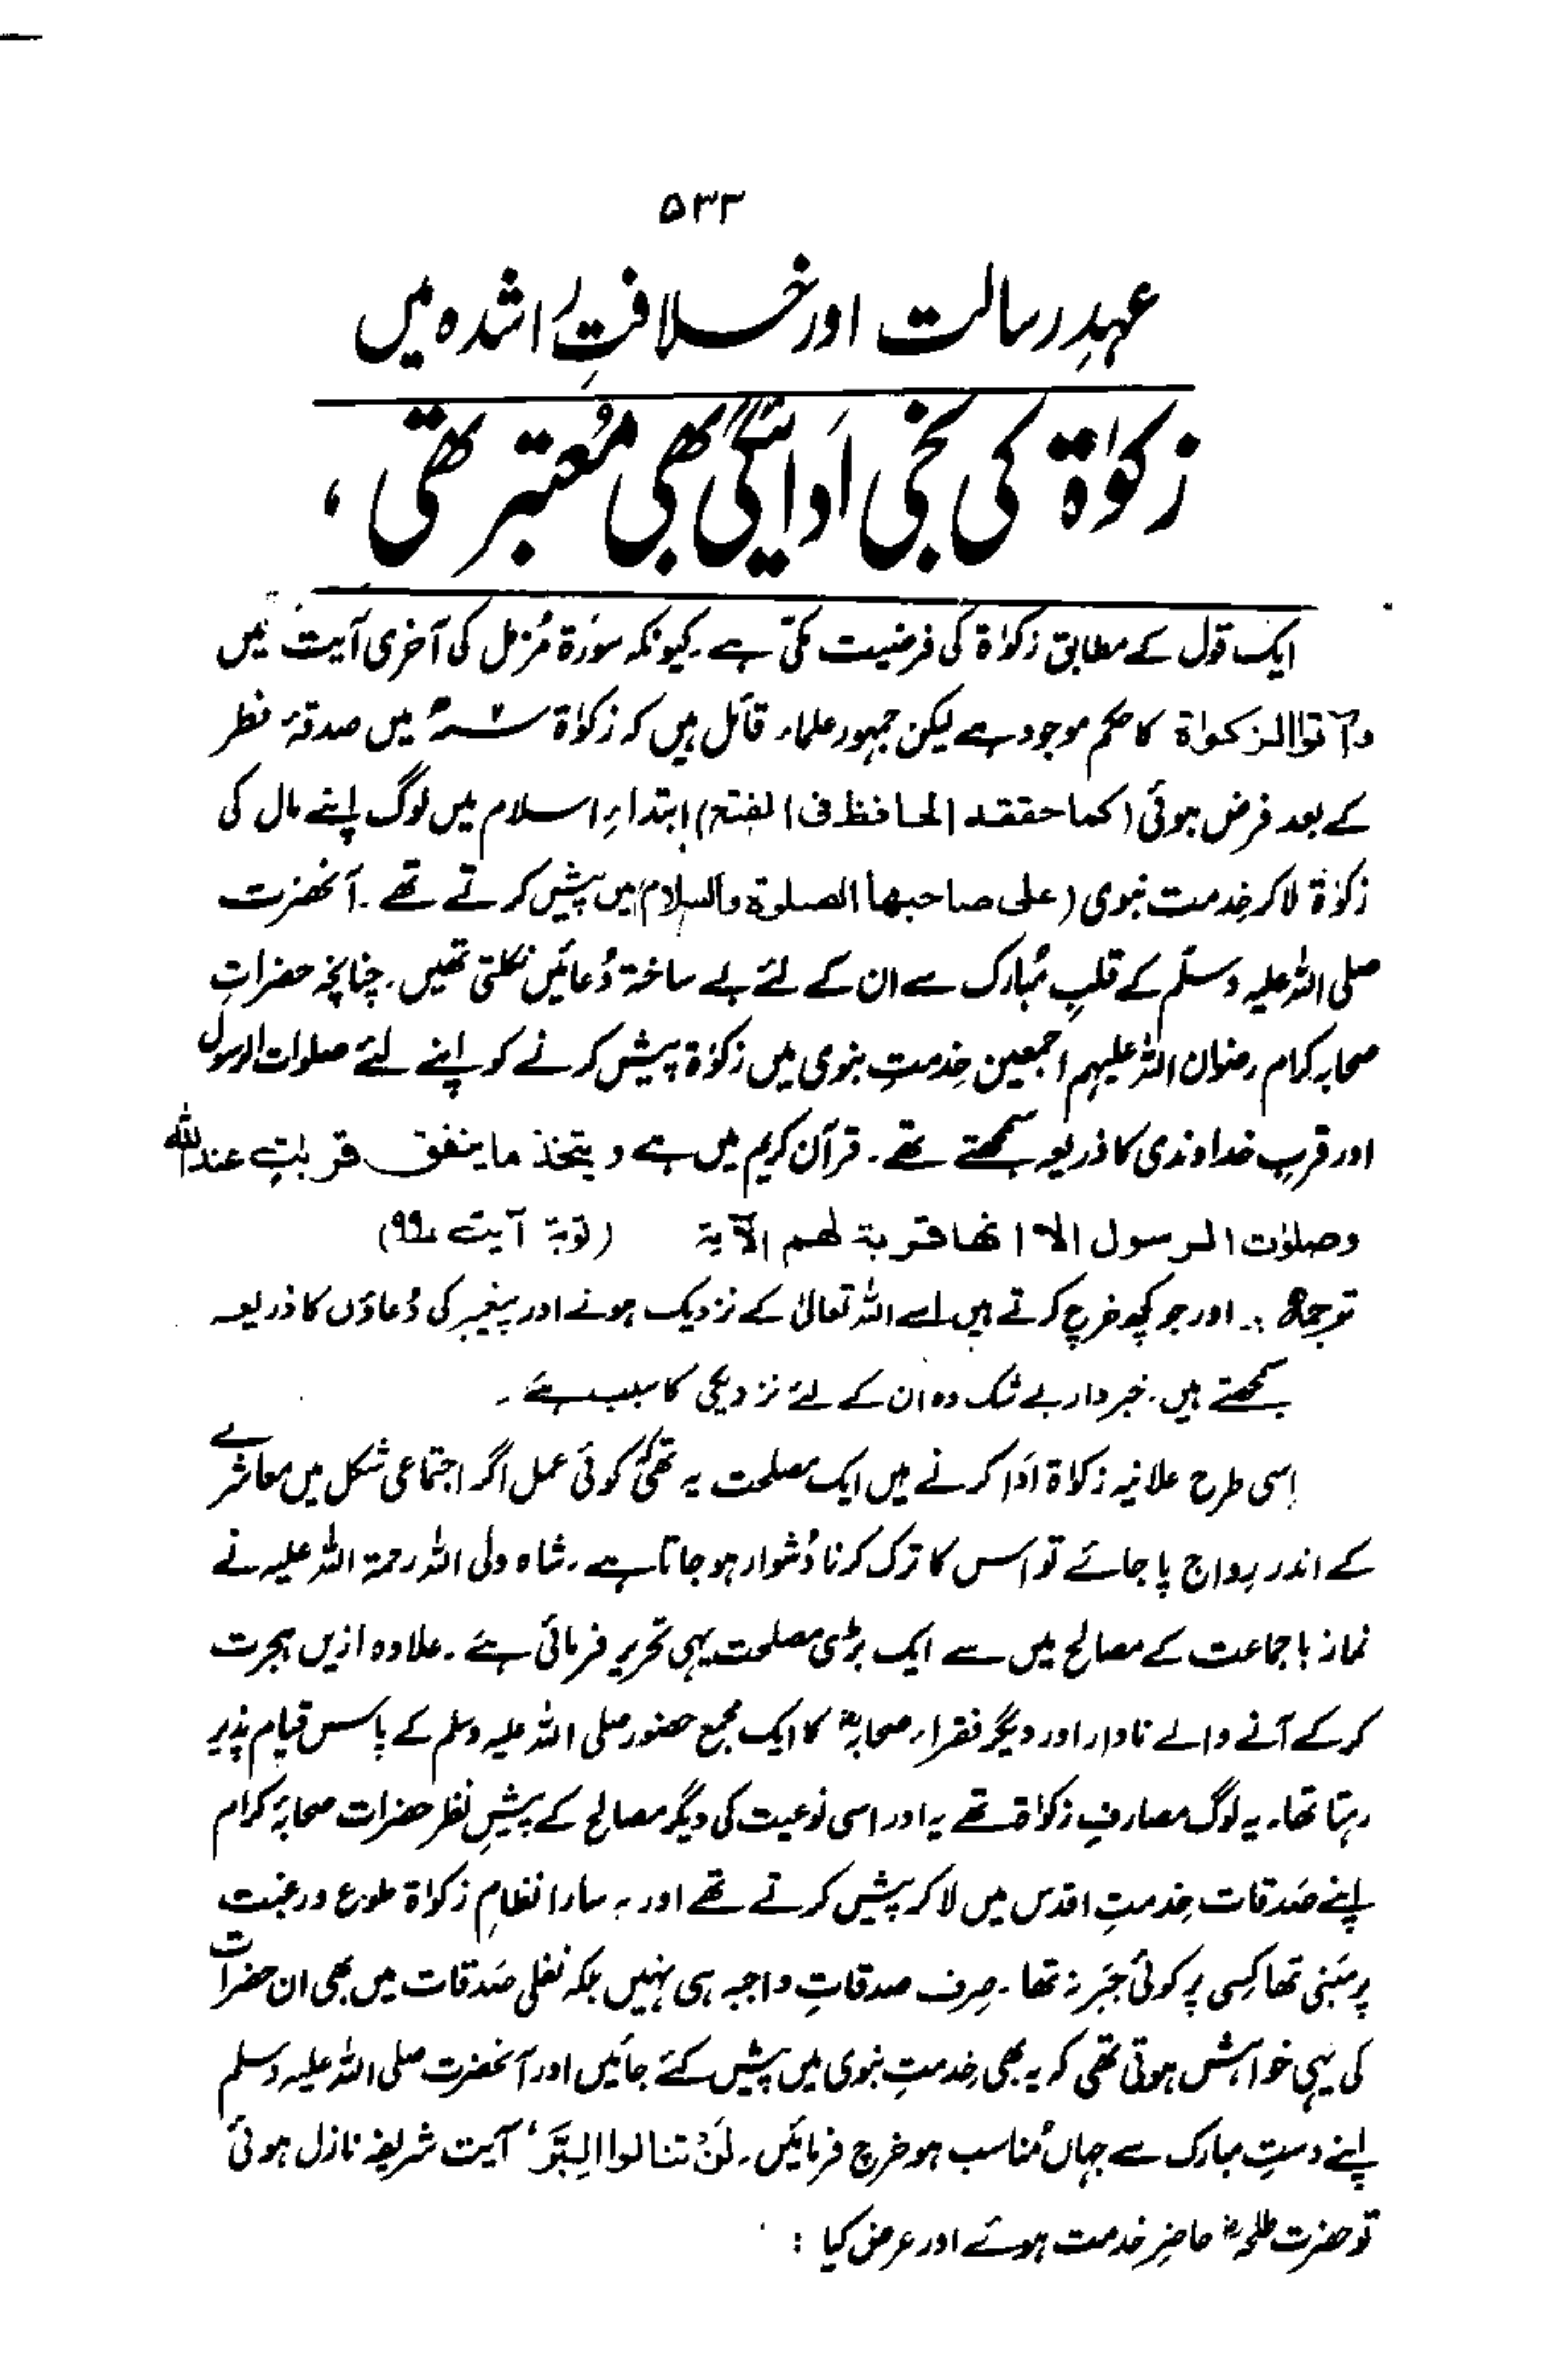 ۵۳۳
عہدِ رسالت اور خلافتِ راشدہ میں
زکوٰۃ کی نجی اَدائیگی بھی مُعتبر تھی،
ایک قول کے مطابق زکوٰۃ کی فرضیت مکّی ہے۔ کیونکہ سورۃ مُزمل کی آخری آیت میں
وآتوا الزکواۃ کا حکم موجود ہے لیکن جمہور علماء قائل ہیں کہ زکوٰۃ ۲ھ میں صدقۂ فطر
کے بعد فرض ہوئی (کما حققہ الحافظ فی الفتح) ابتداءِ اسلام میں لوگ اپنے مال کی
زکوٰۃ لاکر خِدمت نبوی (علی صاحبھا الصلوۃ والسلام) میں پیش کرتے تھے۔ آنحضرت
صلی اللہ علیہ وسلّم کے قلبِ مُبارک سے ان کے لئے بے ساختہ دُعائیں نکلتی تھیں۔ چنانچہ حضراتِ
صحابہ کرام رضوان اللہ علیہم اجمعین خِدمتِ نبوی میں زکوٰۃ پیش کرنے کو اپنے لئے صلوات الرسول
اور قربِ خداوندی کا ذریعہ سمجھتے تھے۔ قرآن کریم میں ہے ویتخذ ما ینفق قربٰتٍ عند اللہ
وصلوٰت الرسول الا انھا قربۃ لھم الآیۃ (توبۃ آیت ۹۹)
ترجمہ :۔ اور جو کچھ خرچ کرتے ہیں اسے اللہ تعالیٰ کے نزدیک ہونے اور پیغمبر کی دُعاؤں کا ذریعہ
سمجھتے ہیں۔ خبردار بے شک وہ ان کے لئے نزدیکی کا سبب ہے۔
اِسی طرح علانیہ زکوٰۃ اَدا کرنے میں ایک مصلحت یہ تھی کہ کوئی عمل اگر اجتماعی شکل میں معاشرے
کے اندر رواج پا جائے تو اس کا ترک کرنا دُشوار ہو جاتا ہے۔ شاہ ولی اللہ رحمۃ اللہ علیہ نے
نماز باجماعت کے مصالح میں سے ایک بڑی مصلحت یہی تحریر فرمائی ہے۔ علاوہ ازیں ہجرت
کرکے آنے والے نادار اور دیگر فقراء صحابہؓ کا ایک مجمع حضور صلی اللہ علیہ وسلم کے پاس قیام پذیر
رہتا تھا۔ یہ لوگ مصارفِ زکوٰۃ تھے یہ اور اسی نوعیت کی دیگر مصالح کے پیشِ نظر حضرات صحابہ کرام
اپنے صَدقات خِدمتِ اقدس میں لاکر پیش کرتے تھے اور یہ سارا نظامِ زکوٰۃ طوع و رغبت
پر مَبنی تھا کِسی پر کوئی جَبر نہ تھا۔ صِرف صدقاتِ واجبہ ہی نہیں بلکہ نفلی صَدقات میں بھی ان حضرات
کی یہی خواہش ہوتی تھی کہ یہ بھی خِدمتِ نبوی میں پیش کئے جائیں اور آنحضرت صلی اللہ علیہ وسلم
اپنے دستِ مبارک سے جہاں مُناسب ہو خرچ فرمائیں۔ لَنْ تنالوا البِرَّ، آیت شریفہ نازل ہوئی
تو حضرت طلحہؓ حاضِر خدمت ہوئے اور عرض کیا :